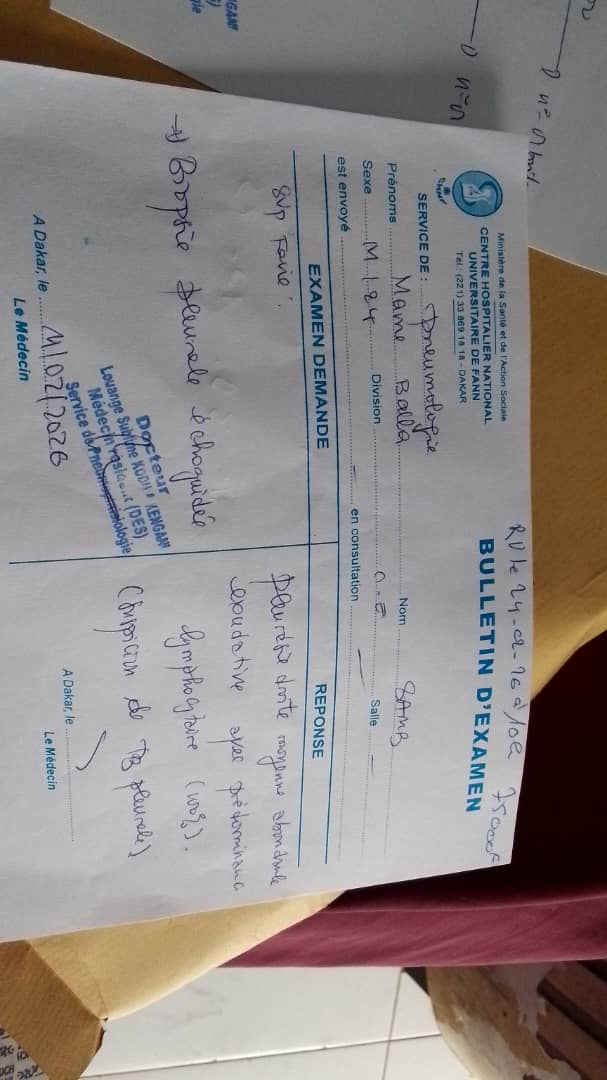 RV le 24-02-26 à 10h
75000F
Ministère de la Santé et de l'Action Sociale
CENTRE HOSPITALIER NATIONAL
UNIVERSITAIRE DE FANN
Tél.: (221) 33 869 18 18 - DAKAR
BULLETIN D'EXAMEN
SERVICE DE : Pneumologie
Prénoms Mame Balla Nom SAMB
Sexe M / 24 Division Salle
est envoyé en consultation
EXAMEN DEMANDE
REPONSE
SVP Faire :
→ Biopsie pleurale échoguidée
Pleurésie droite moyenne abondance
exsudative avec prédominance
lymphocytaire (100%).
(suspicion de TB pleurale)
Docteur
Louange Sublime
Médecin (DES)
Service de Pneumologie
A Dakar, le 11/02/2026
Le Médecin
A Dakar, le
Le Médecin